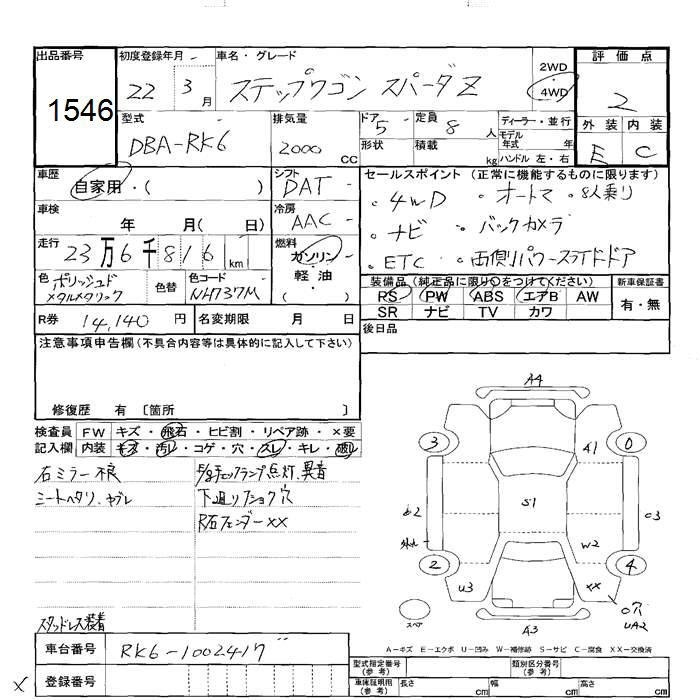 出品番号 初度登録年月 車名・グレード 2WD ・ 4WD 評価点
1546 22 3月 ステップワゴン スパーダZ 2
型式 排気量 ドア 定員 ディーラー・並行 外装 内装
DBA-RK6 2000 CC 5 8人 モデル年式 年 E C
形状 積載 kg ハンドル 左・右
車歴 シフト セールスポイント(正常に機能するものに限ります)
自家用・( ) DAT
・4WD ・オートマ ・8人乗り
車検 年 月( 日) 冷房 AAC
・ナビ ・バックカメラ
走行 23万6千816 km 燃料 ガソリン・軽油・( )
・ETC ・両側パワースライドドア
色 ポリッシュドメタルメタリック 色替 色コード NH737M
装備品(純正品に限り○をつけてください) 新車保証書
RS PW ABS エアB AW 有・無
SR ナビ TV カワ
R券 14,140円 名変期限 月 日 後日品
注意事項申告欄(不具合内容等は具体的に記入して下さい)
修復歴 有 [箇所 ]
検査員記入欄 FW キズ・飛石・ヒビ割・リペア跡・×要
内装 キズ・汚レ・コゲ・穴・スレ・キレ・破レ
右ミラー不良
シートヘタリ、ヤブレ
チェックランプ点灯、異音
下廻り 穴
R右フェンダーXX
スタッドレス装着
A4
3 A1 0
S1
b2 C3
W2
2 4
U3 XX
○穴
UA2
スペア A3
A-キズ E-エクボ U-凹み W-補修跡 S-サビ C-腐食 XX-交換済
車台番号 RK6-1002417
登録番号
X
型式指定番号(参考) 類別区分番号(参考)
車庫証明用(参考) 長さ cm 幅 cm 高さ cm